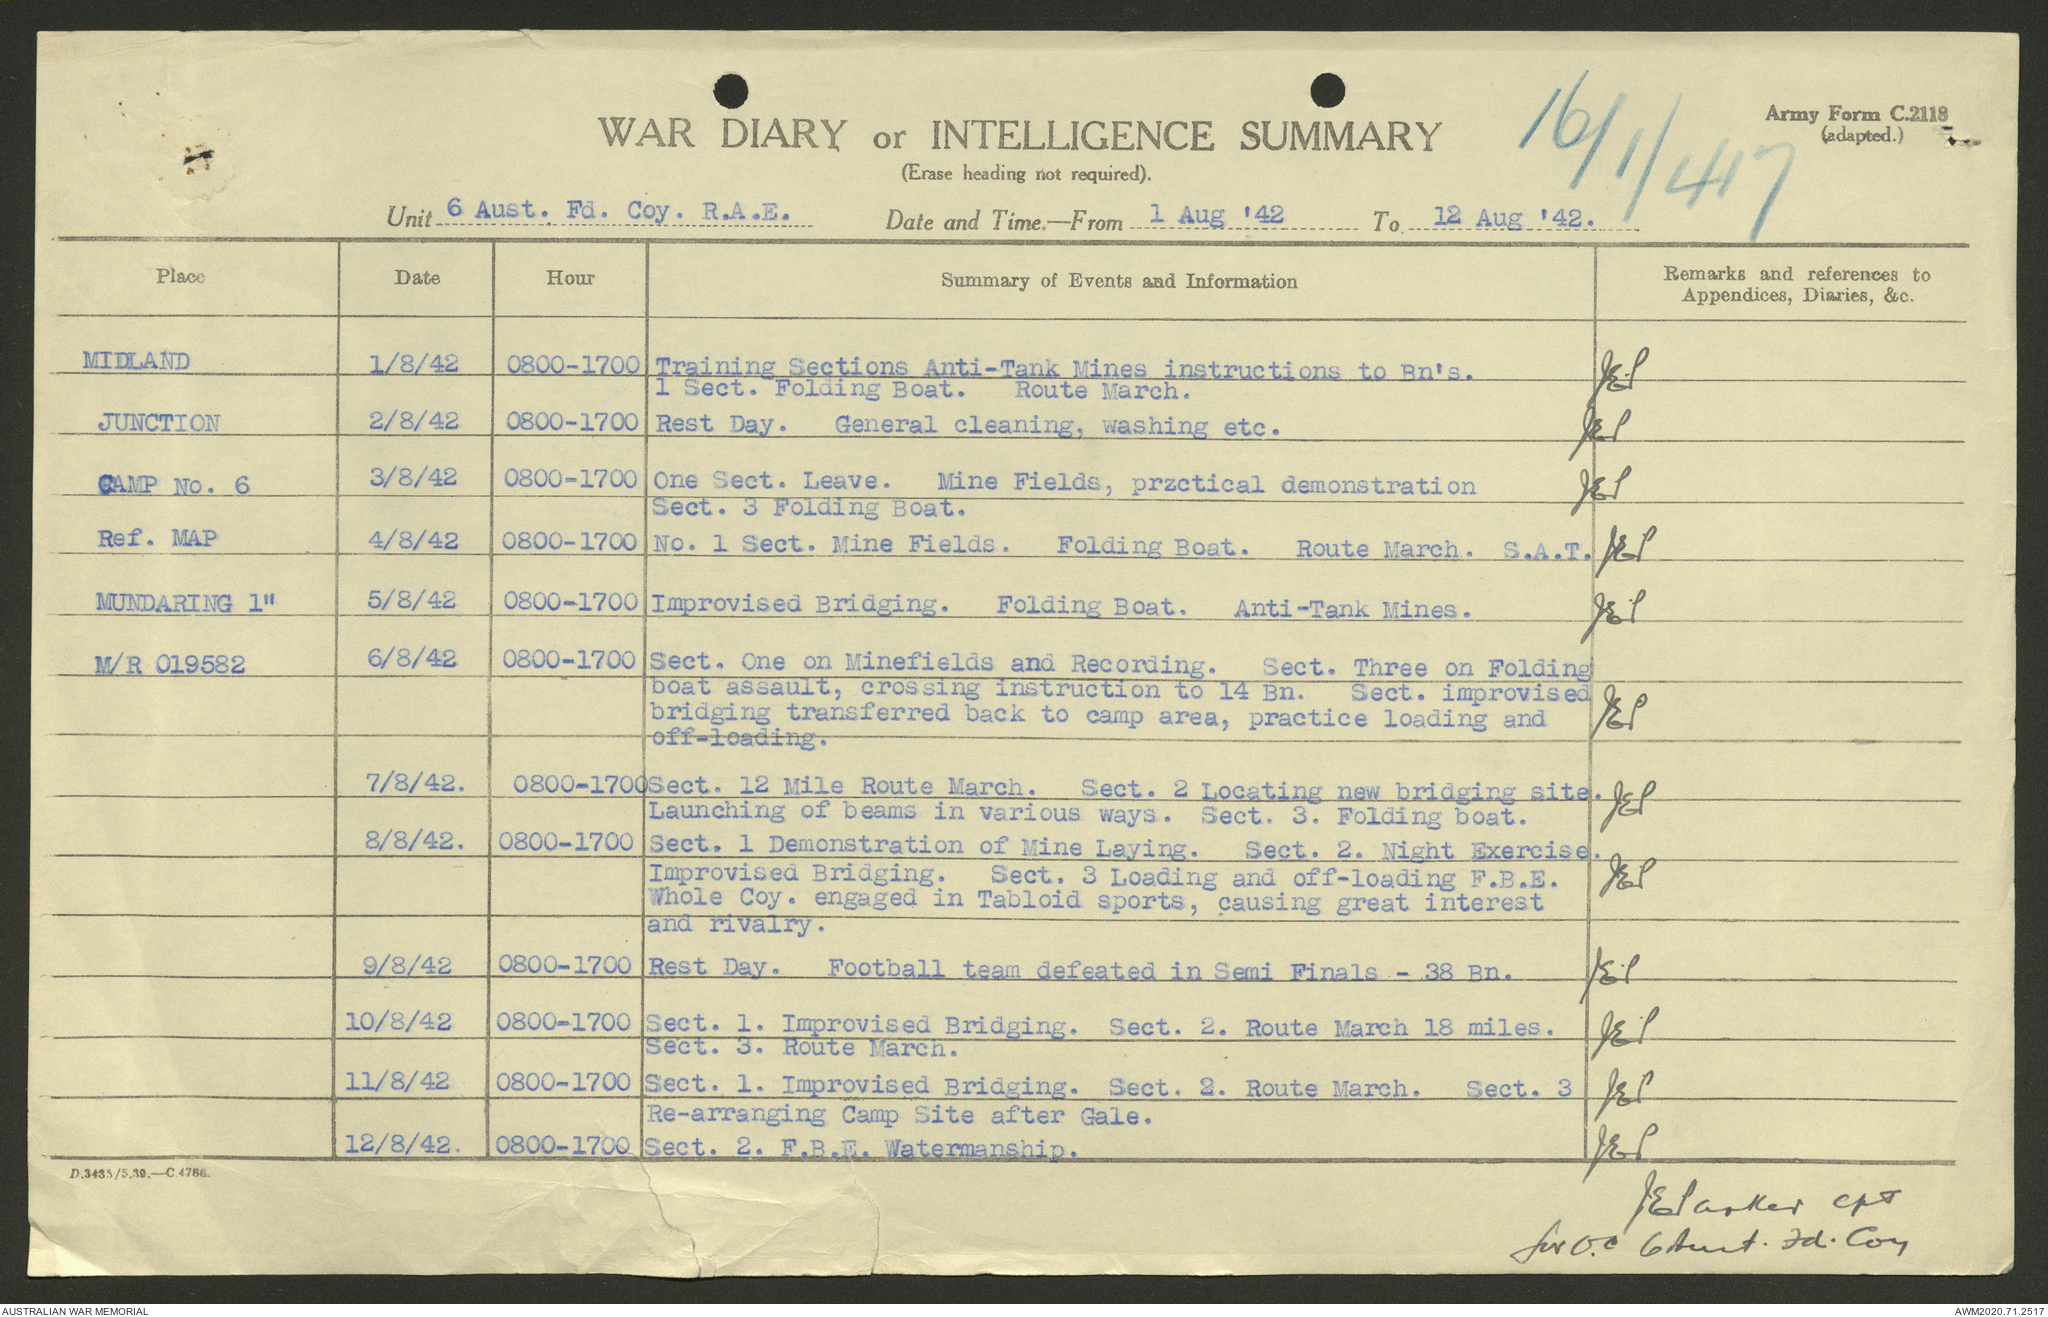 16/1/447
Army Form C.2118
(adapted.)
WAR DIARY or INTELLIGENCE SUMMARY
(Erase heading not required).
Unit 6 Aust. Fd. Coy. R.A.E. Date and Time.—From 1 Aug '42 To 12 Aug '42.
Place Date Hour Summary of Events and Information Remarks and references to
Appendices, Diaries, &c.
MIDLAND 1/8/42 0800-1700 Training Sections Anti-Tank Mines instructions to Bn's. JEP
1 Sect. Folding Boat. Route March.
JUNCTION 2/8/42 0800-1700 Rest Day. General cleaning, washing etc. JEP
CAMP No. 6 3/8/42 0800-1700 One Sect. Leave. Mine Fields, przctical demonstration JEP
Sect. 3 Folding Boat.
Ref. MAP 4/8/42 0800-1700 No. 1 Sect. Mine Fields. Folding Boat. Route March. S.A.T. JEP
MUNDARING 1" 5/8/42 0800-1700 Improvised Bridging. Folding Boat. Anti-Tank Mines. JEP
M/R 019582 6/8/42 0800-1700 Sect. One on Minefields and Recording. Sect. Three on Folding
boat assault, crossing instruction to 14 Bn. Sect. improvised
bridging transferred back to camp area, practice loading and JEP
off-loading.
7/8/42. 0800-1700 Sect. 12 Mile Route March. Sect. 2 Locating new bridging site. JEP
Launching of beams in various ways. Sect. 3. Folding boat.
8/8/42. 0800-1700 Sect. 1 Demonstration of Mine Laying. Sect. 2. Night Exercise.
Improvised Bridging. Sect. 3 Loading and off-loading F.B.E. JEP
Whole Coy. engaged in Tabloid sports, causing great interest
and rivalry.
9/8/42 0800-1700 Rest Day. Football team defeated in Semi Finals - 38 Bn. JEP
10/8/42 0800-1700 Sect. 1. Improvised Bridging. Sect. 2. Route March 18 miles. JEP
Sect. 3. Route March.
11/8/42 0800-1700 Sect. 1. Improvised Bridging. Sect. 2. Route March. Sect. 3 JEP
Re-arranging Camp Site after Gale.
12/8/42. 0800-1700 Sect. 2. F.B.E. Watermanship. JEP
D.3435/5.39.—C.4786.
JEParker Cpt
for O.C 6 Aust. Fd. Coy
AUSTRALIAN WAR MEMORIAL AWM2020.71.2517